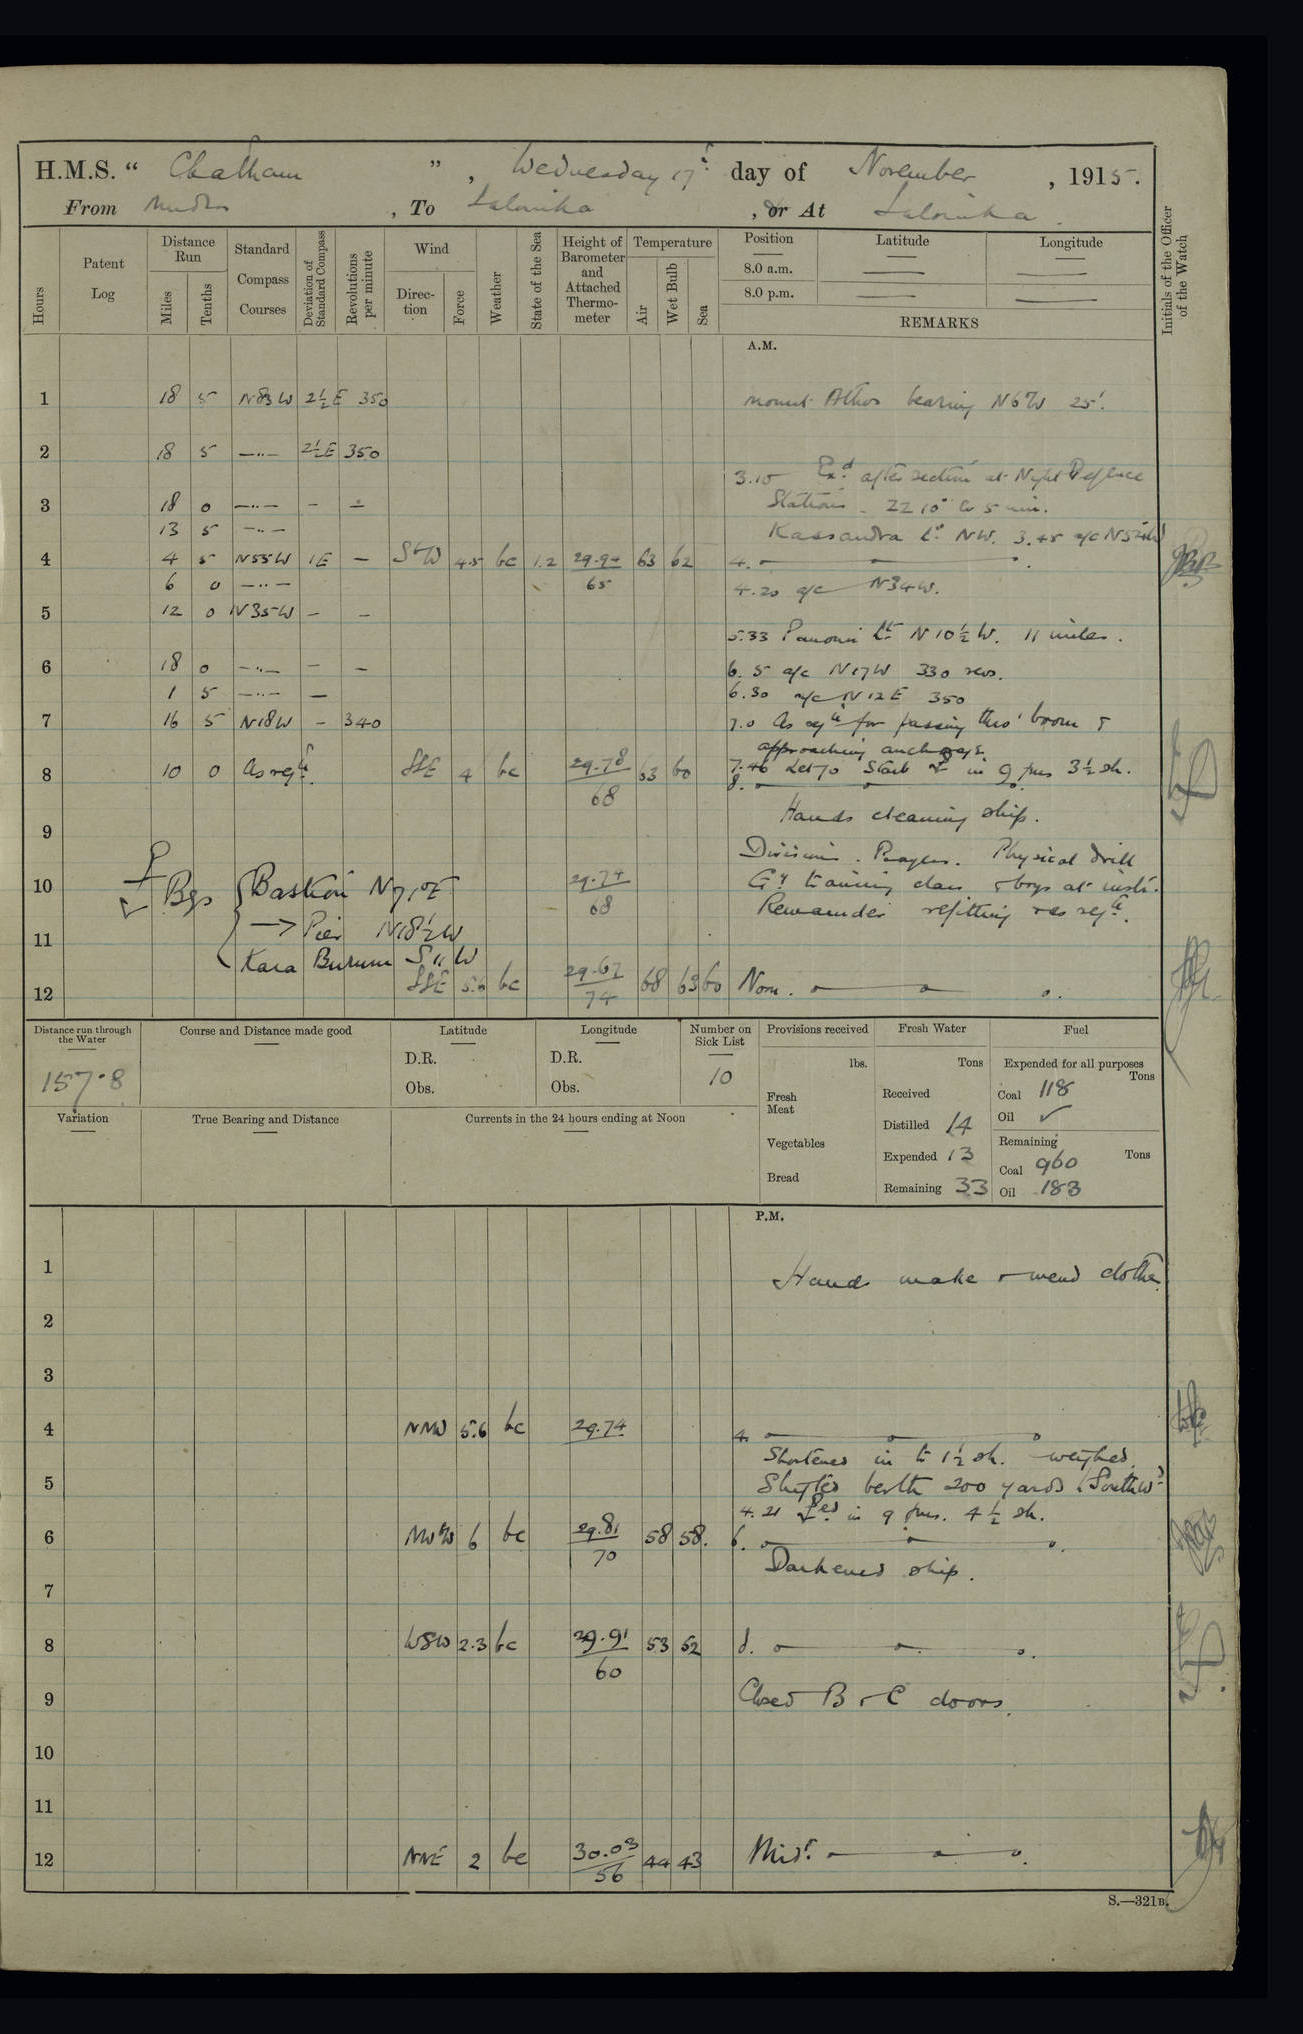 H.M.S. “ Chatham ” , Wednesday 17th day of November , 1915.
From Mudros , To Salonika , or At Salonika.
Hours
Patent Log
Distance Run
Miles
Tenths
Standard Compass Courses
Deviation of Standard Compass
Revolutions per minute
Wind
Direction
Force
Weather
State of the Sea
Height of Barometer and Attached Thermometer
Temperature
Air
Wet Bulb
Sea
Position
8.0 a.m.
8.0 p.m.
Latitude
Longitude
REMARKS
Initials of the Officer of the Watch
A.M.
1 18 5 N83W 2½E 350 Mount Athos bearing N67W 25'.
2 18 5 —..— 2½E 350
3.10 Exd after section at Night Defence
3 18 0 —..— - -
Stations.
13 5 —..— Kassandra Lt NW. 3.45 a/c
4 4 5 N55W 1E — SbW 4.5 bc 1.2 29.94 63 62 4.
6 0 —..— 65 4.20 a/c N34W.
5 12 0 N35W – –
5.33 Panomi Lt N10½W. 11 miles.
6 18 0 —..— – – 6.5 a/c N17W 330 revs.
1 5 —..— — 6.30 a/c N12E 350
7 16 5 N18W - 340 7.0 As reqte for passing thro' boom &
approaching anchorage.
8 10 0 As reqte. SSE 4 bc 29.78 63 60 7.46 Let go Starb in 9 fms 3½ sh.
68 8.
Hands cleaning ship.
9
Divisions. Prayers. Physical drill
10 Bgs Bastion N71°E 29.74 Gy training class & boys at instn.
68 Remainder refitting & as reqte.
11 → Pier N18½W
Kara Burum S11W
12 SSE 5.6 bc 29.67 68 63 60 Noon.
74
Distance run through the Water
157.8
Course and Distance made good
Latitude
D.R.
Obs.
Longitude
D.R.
Obs.
Number on Sick List
10
Variation
True Bearing and Distance
Currents in the 24 hours ending at Noon
Provisions received
lbs.
Fresh Meat
Vegetables
Bread
Fresh Water
Tons
Received
Distilled 14
Expended 13
Remaining 33
Fuel
Expended for all purposes
Tons
Coal 118
Oil ✓
Remaining
Tons
Coal 960
Oil 183
P.M.
1 Hands make & mend clothes
2
3
4 NNW 5.6 bc 29.74 4.
Shortened in to 1½ sh. weighed.
5 Shifted berth 200 yards
4.21 in 9 fms. 4½ sh.
6 NWbW 6 bc 29.81 58 58. 6.
70 Darkened ship.
7
8 WSW 2.3 bc 29.91 53 52 8.
60
9 Closed B & C doors.
10
11
12 NNE 2 bc 30.03 44 43 Midt.
56
S.—321B.